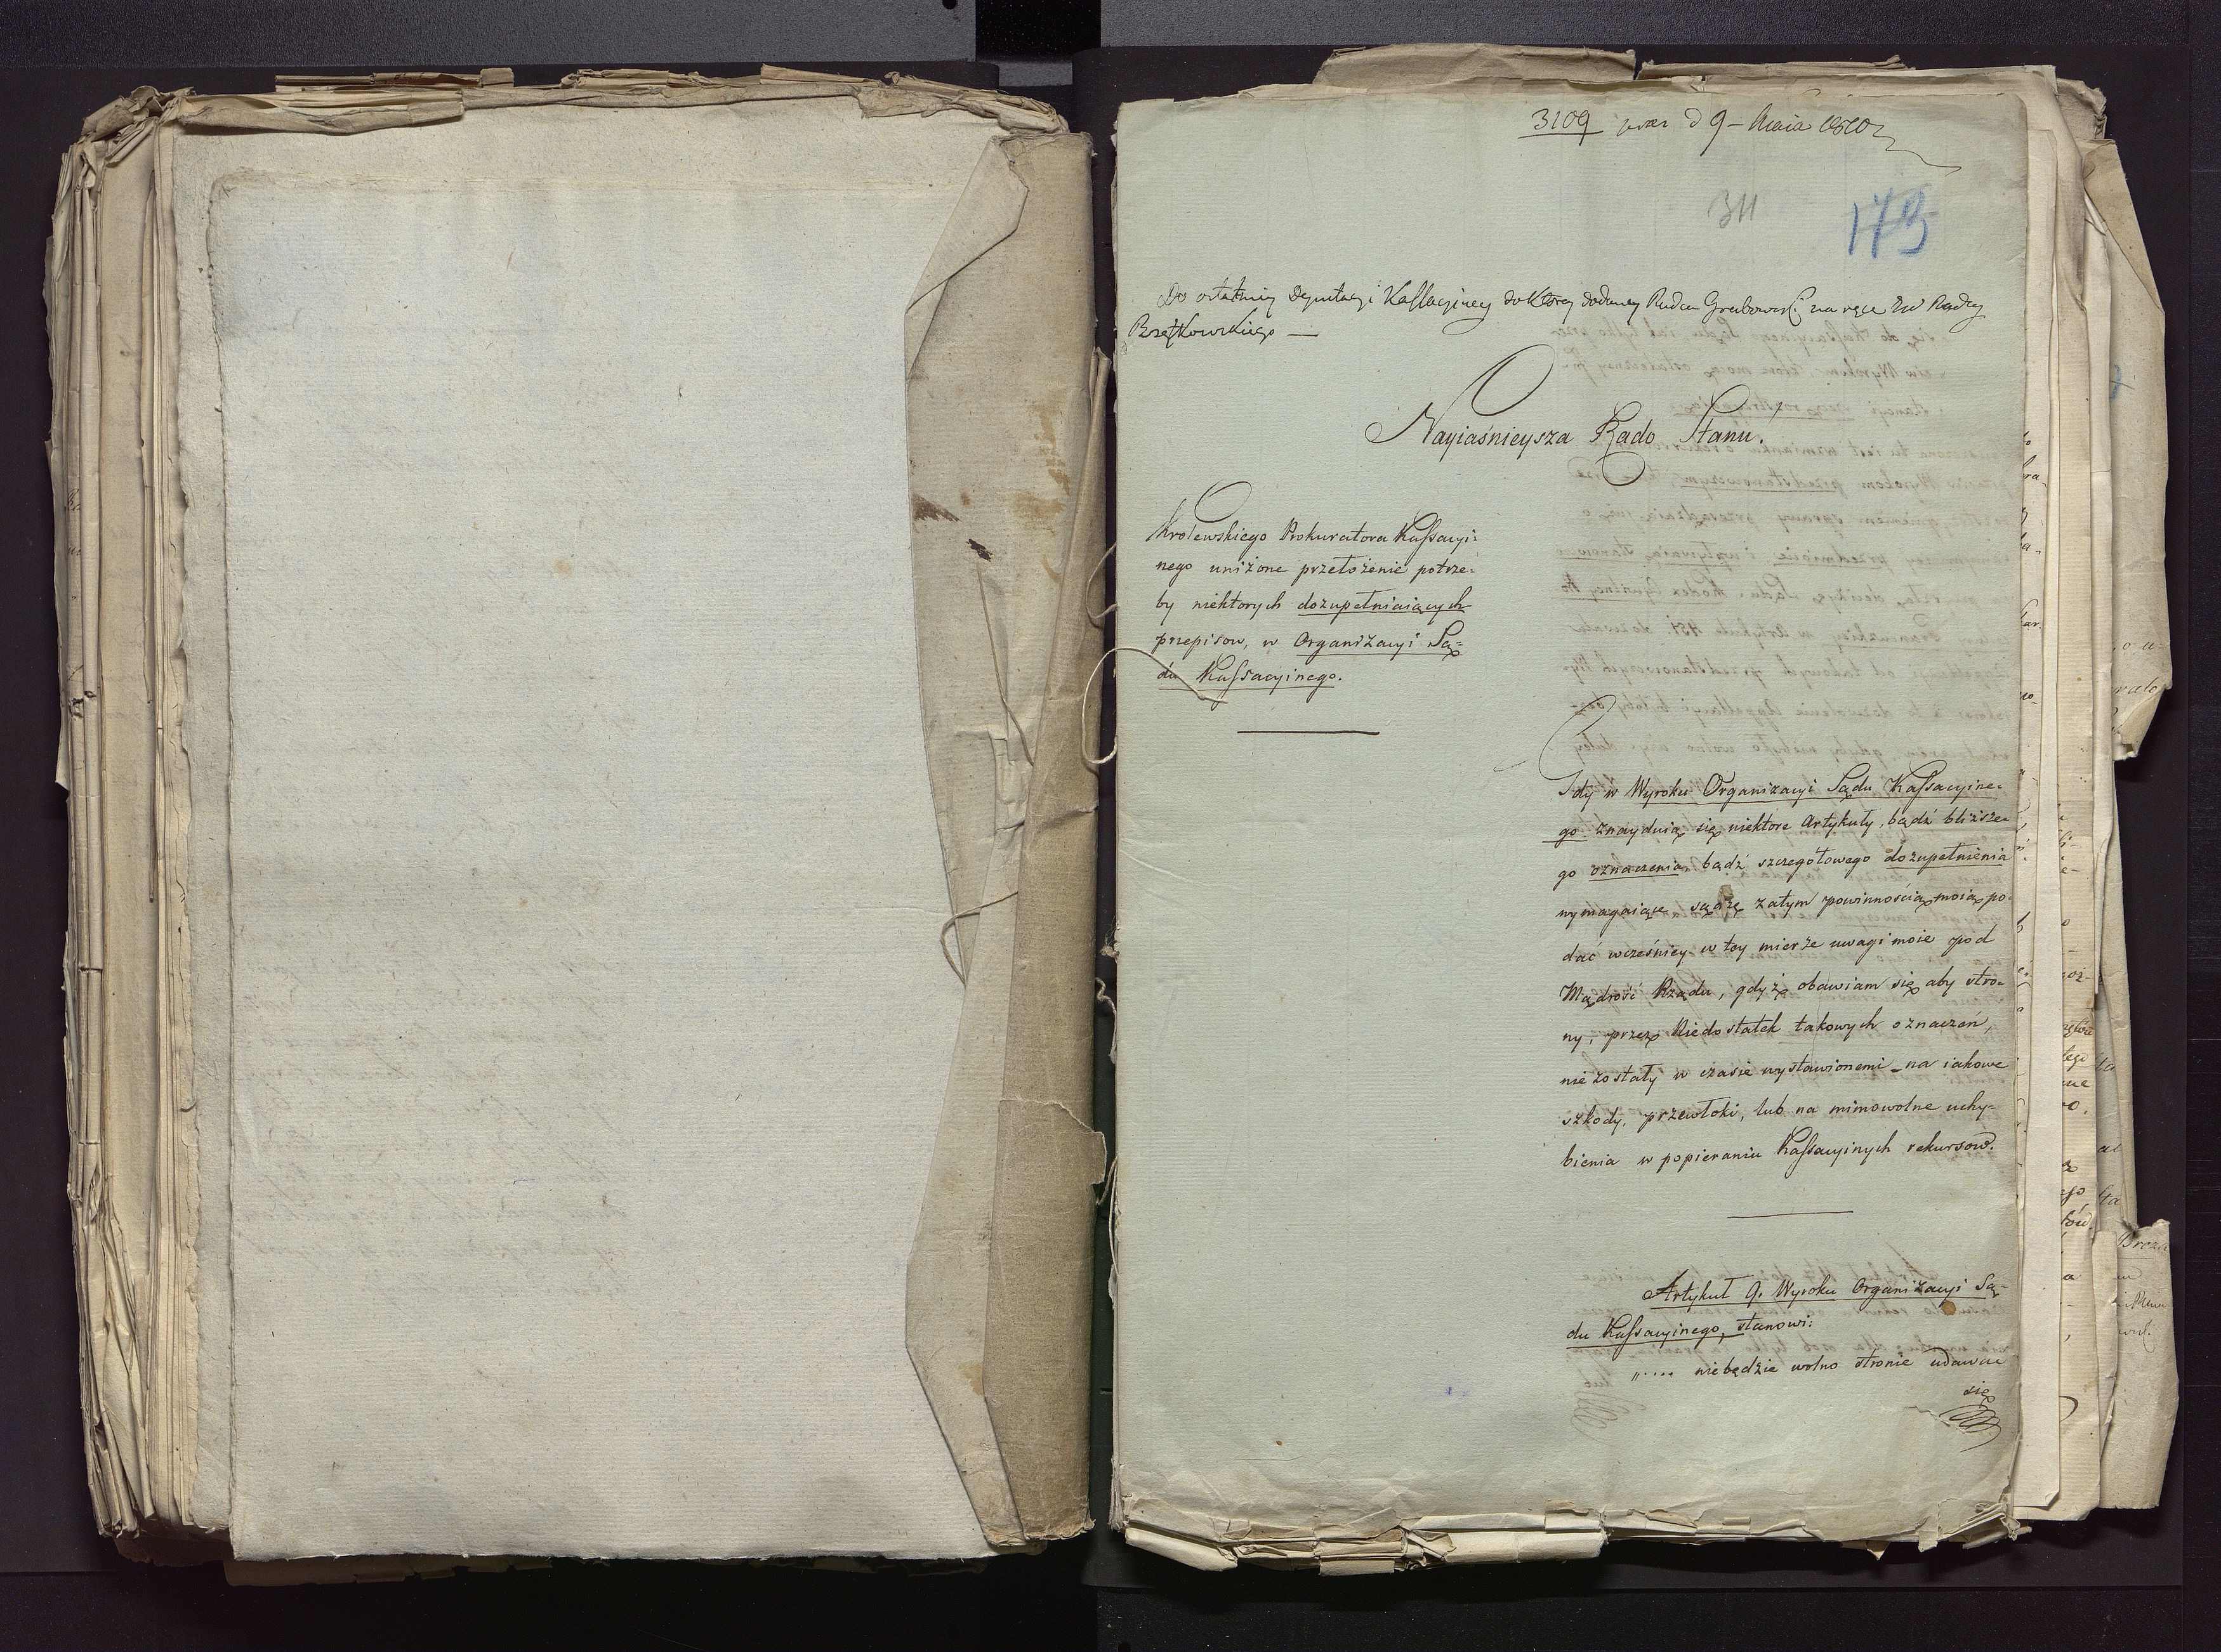 3109 prez d 9 – Maia 1810
311
173
Do ostatniey Deputacyi Kassacyiney do Ktorey dodany Radca Grabowski na ręce JW Radcy
Brzękowskiego —
Nayiaśnieysza Rado Stanu!
Krolewskiego Prokuratora Kassacyi=
nego uniżone przełożenie potrze=
by niektorych dozupełniaiących
przepisow, w Organizacyi Są=
du Kassacyinego.
Gdy w Wyroku Organizacyi Sądu Kassacyine=
go znayduią się niektore Artykuły, bądź bliższe=
go oznaczenia, bądź szczegółowego dozupełnienia
wymagaiące, sądzę zatym powinnością moią po=
dać wcześniey w tey mierze uwagi moie pod
Mądrość Rządu, gdyż obawiam się aby stro=
ny, przez Niedostatek takowych oznaczeń,
nie zostały w czasie wystawionemi na iakowe
szkody, przewłoki, lub na mimowolne uchy=
bienia w popieraniu Kassacyinych rekursow.
Artykuł 9. Wyroku Organizacyi Są=
du Kassacyinego, stanowi:
„.... niebędzie wolno stronie udawać
się